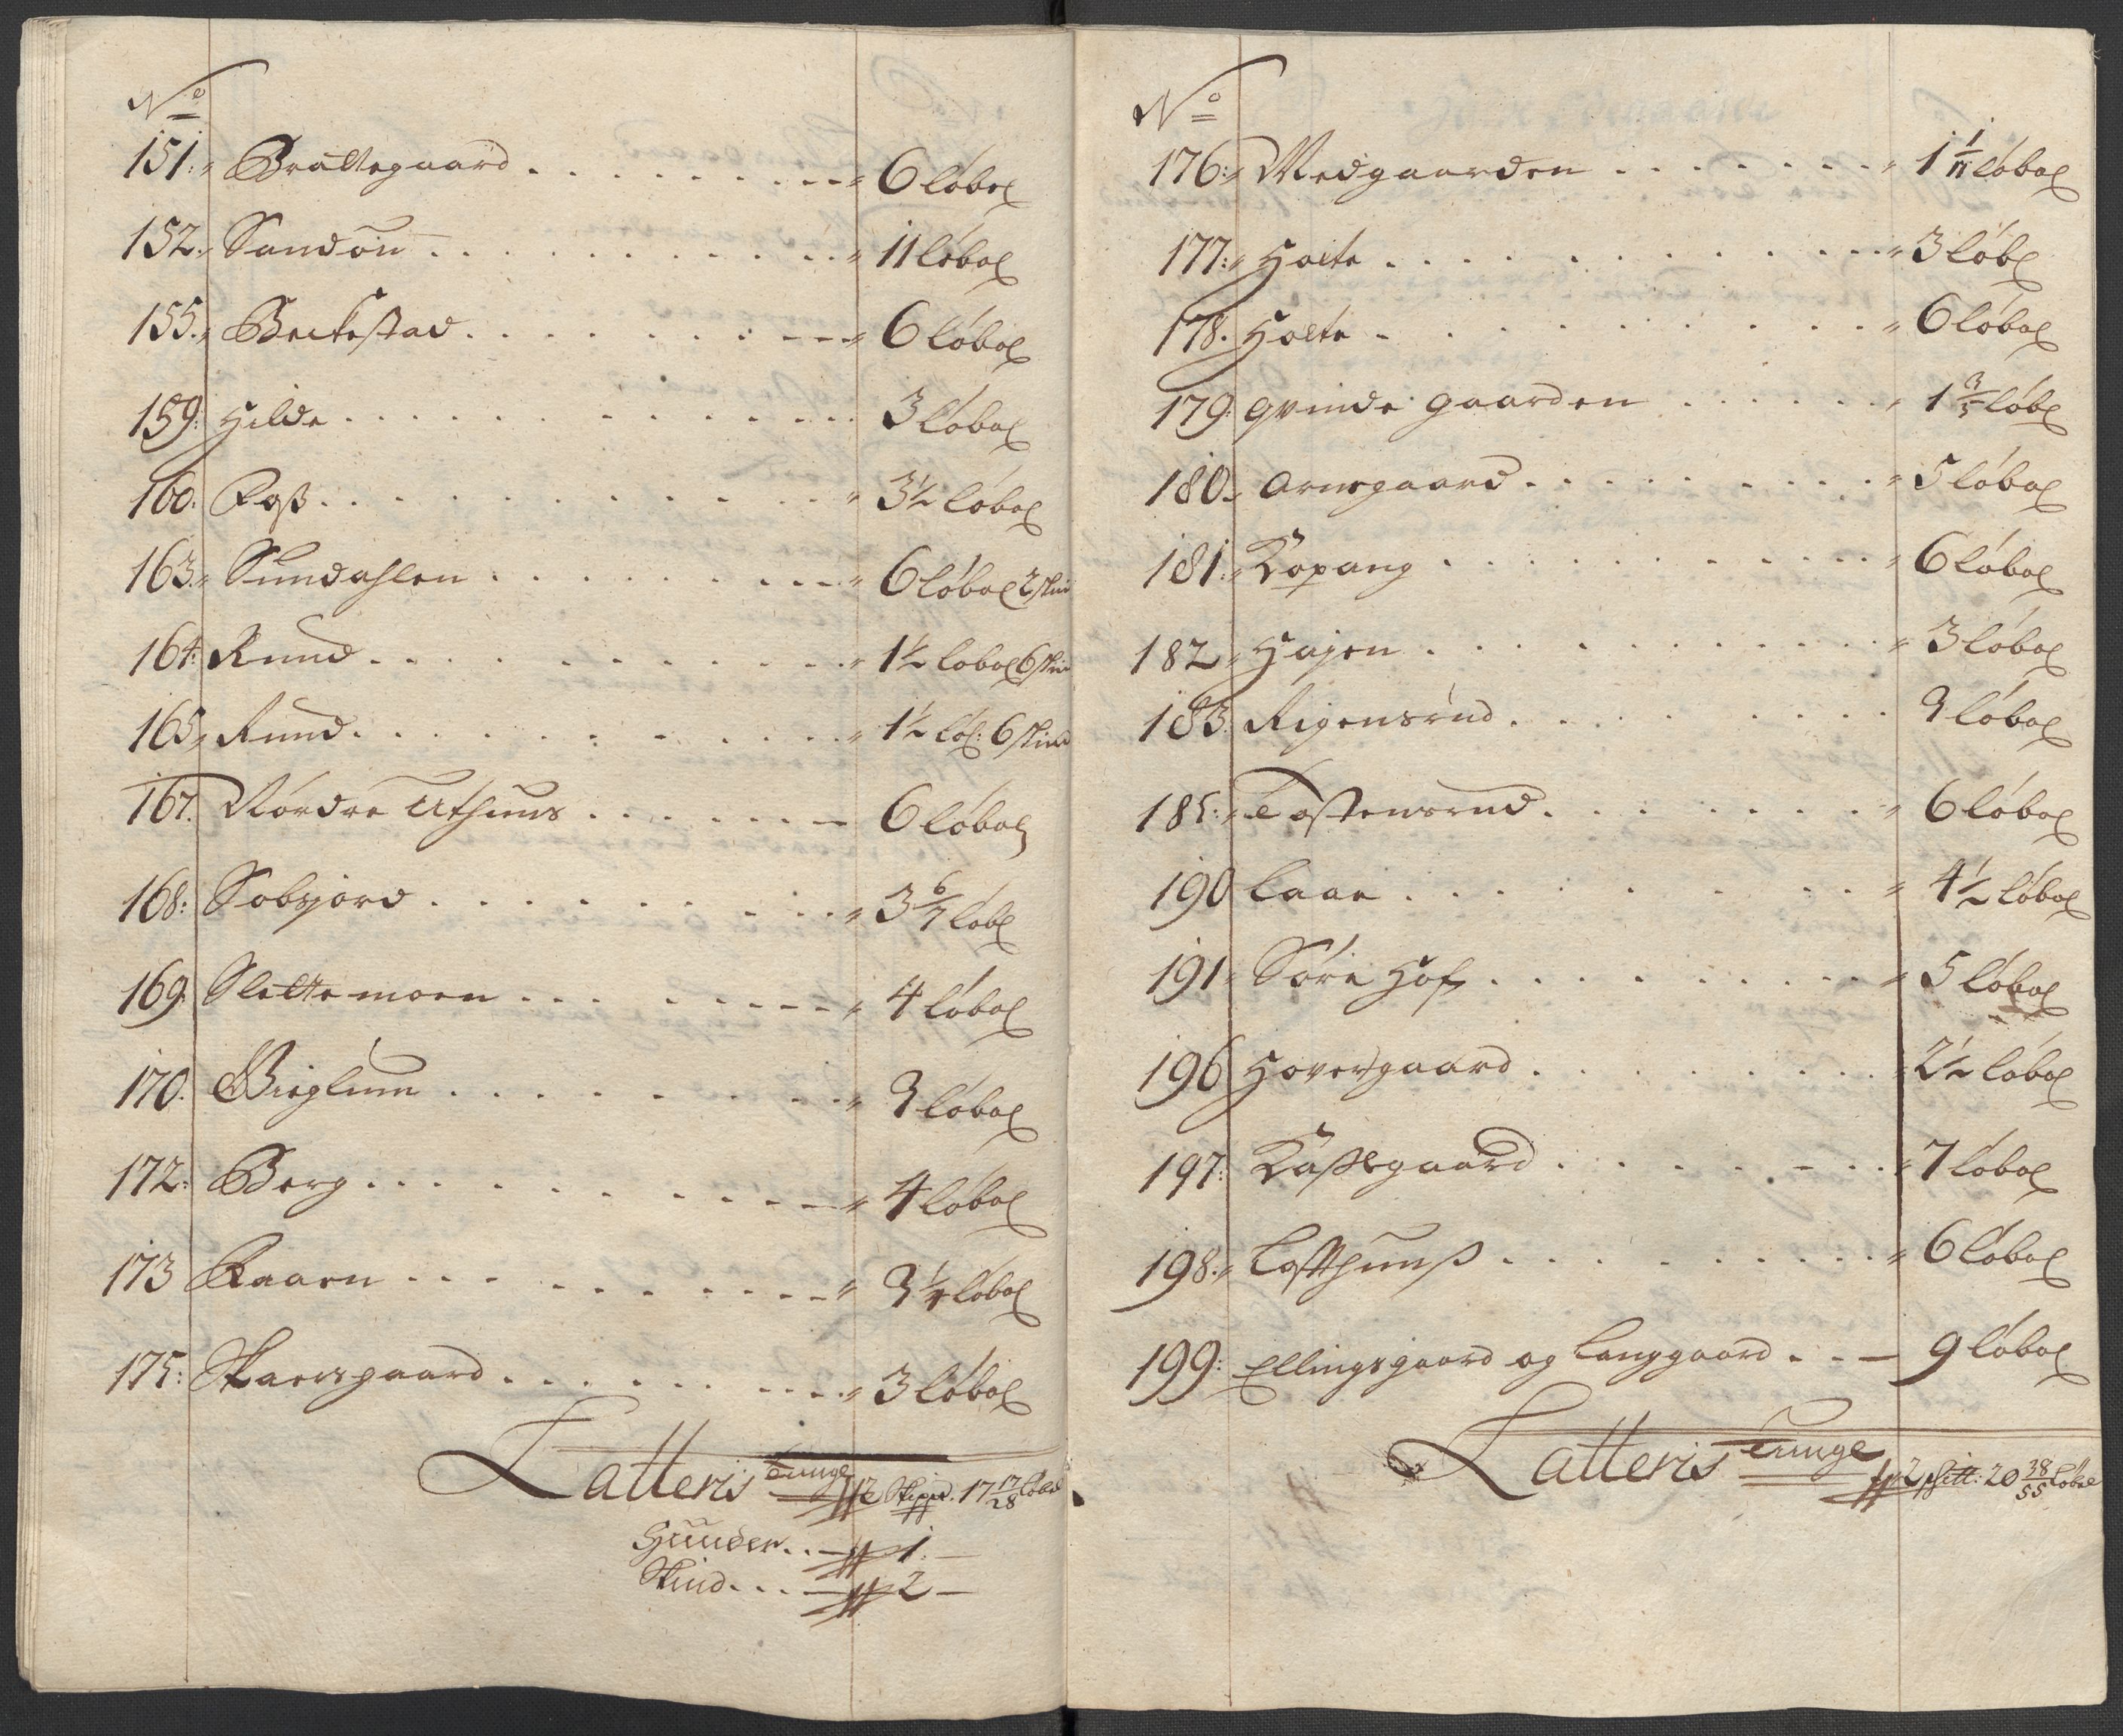 No
151. Brattegaard 6 løbol
152. Sandøn 11 løbol
155. Beckestad 6 løbol
159. Hilde 3 løbol
160. Foss 3½ løbol
163. Sundahlen 6 løbol 2 skind
164. Rund 1½ løbol 6 skind
165. Rund 1½ løb: 6 skind
167. Nordre Uthuus 6 løbol
168: Solsjord 3 6/7 løbl
169. Slettemoen 4 løbol
170. Wiglum 3 løbol
172: Berg 4 løbol
173 Raaen 3¼ løbol
175: Skaersgaard 3 løbol
Latteris tunge 2 Skippd. 17 17/28 løbol
Huuder 1.
Skind 2
No
176: Medgaarden 1 1/11 løbol
177: Holte 3 løbl
178. Holte 6 løbol
179. Qvinde gaarden 1 3/5 løbl
180. Arnegaard 5 løbol
181. Kopang 6 løbol
182 Hajen 3 løbol
183. Rigensrud 3 løbol
185: Tostensrud 6 løbol
190 Laae 4½ løbol
191 Søre Hof 5 løbol
196 Hoversgaard 2½ løbol
197: Kaslegaard 7 løbol
198. Loffthuuss 6 løbol
199: Ellingsgaard og Langgaard 9 løbol
Latteris tunge 2 schitt: 20 38/55 løbol